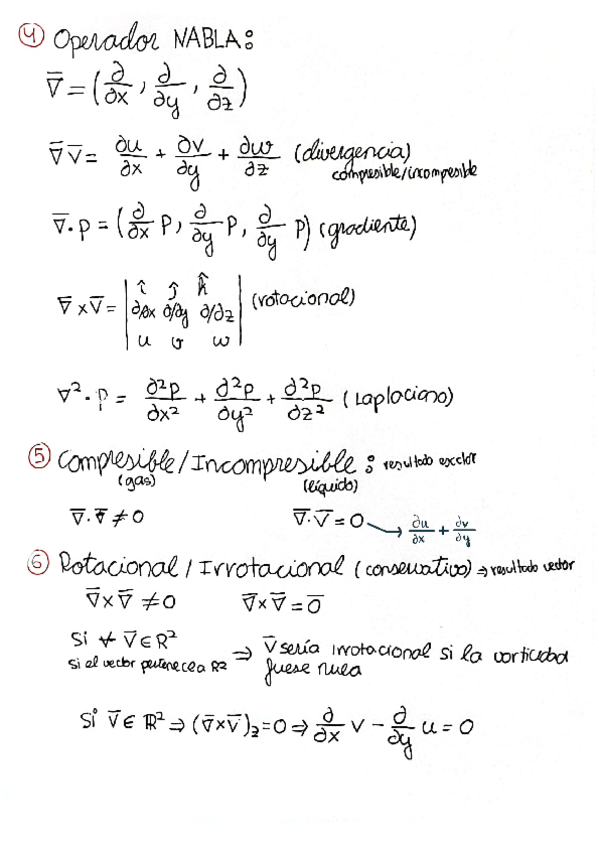 ④ Operador NABLA:
∇̅ = (∂/∂x, ∂/∂y, ∂/∂z)
∇̅ V̅ = ∂u/∂x + ∂v/∂y + ∂w/∂z (divergencia)
compresible/incompresible
∇̅ · p = (∂/∂x p, ∂/∂y p, ∂/∂y p) (gradiente)
∇̅ × V̅ = | î ĵ k̂ |
| ∂/∂x ∂/∂y ∂/∂z | (rotacional)
| u v w |
∇² · p = ∂²p/∂x² + ∂²p/∂y² + ∂²p/∂z² (Laplaciano)
⑤ Compresible / Incompresible : resultado escalar
(gas) (líquido)
∇̅ · V̅ ≠ 0 ∇̅ · V̅ = 0 → ∂u/∂x + ∂v/∂y
⑥ Rotacional / Irrotacional (conservativo) ⇒ resultado vector
∇̅ × V̅ ≠ 0 ∇̅ × V̅ = 0̅
Si ∀ V̅ ∈ R² ⇒ V̅ sería irrotacional si la vorticidad
Si el vector pertenece a R2 fuese nula
Si V̅ ∈ ℝ² ⇒ (∇̅ × V̅)z = 0 ⇒ ∂/∂x v − ∂/∂y u = 0